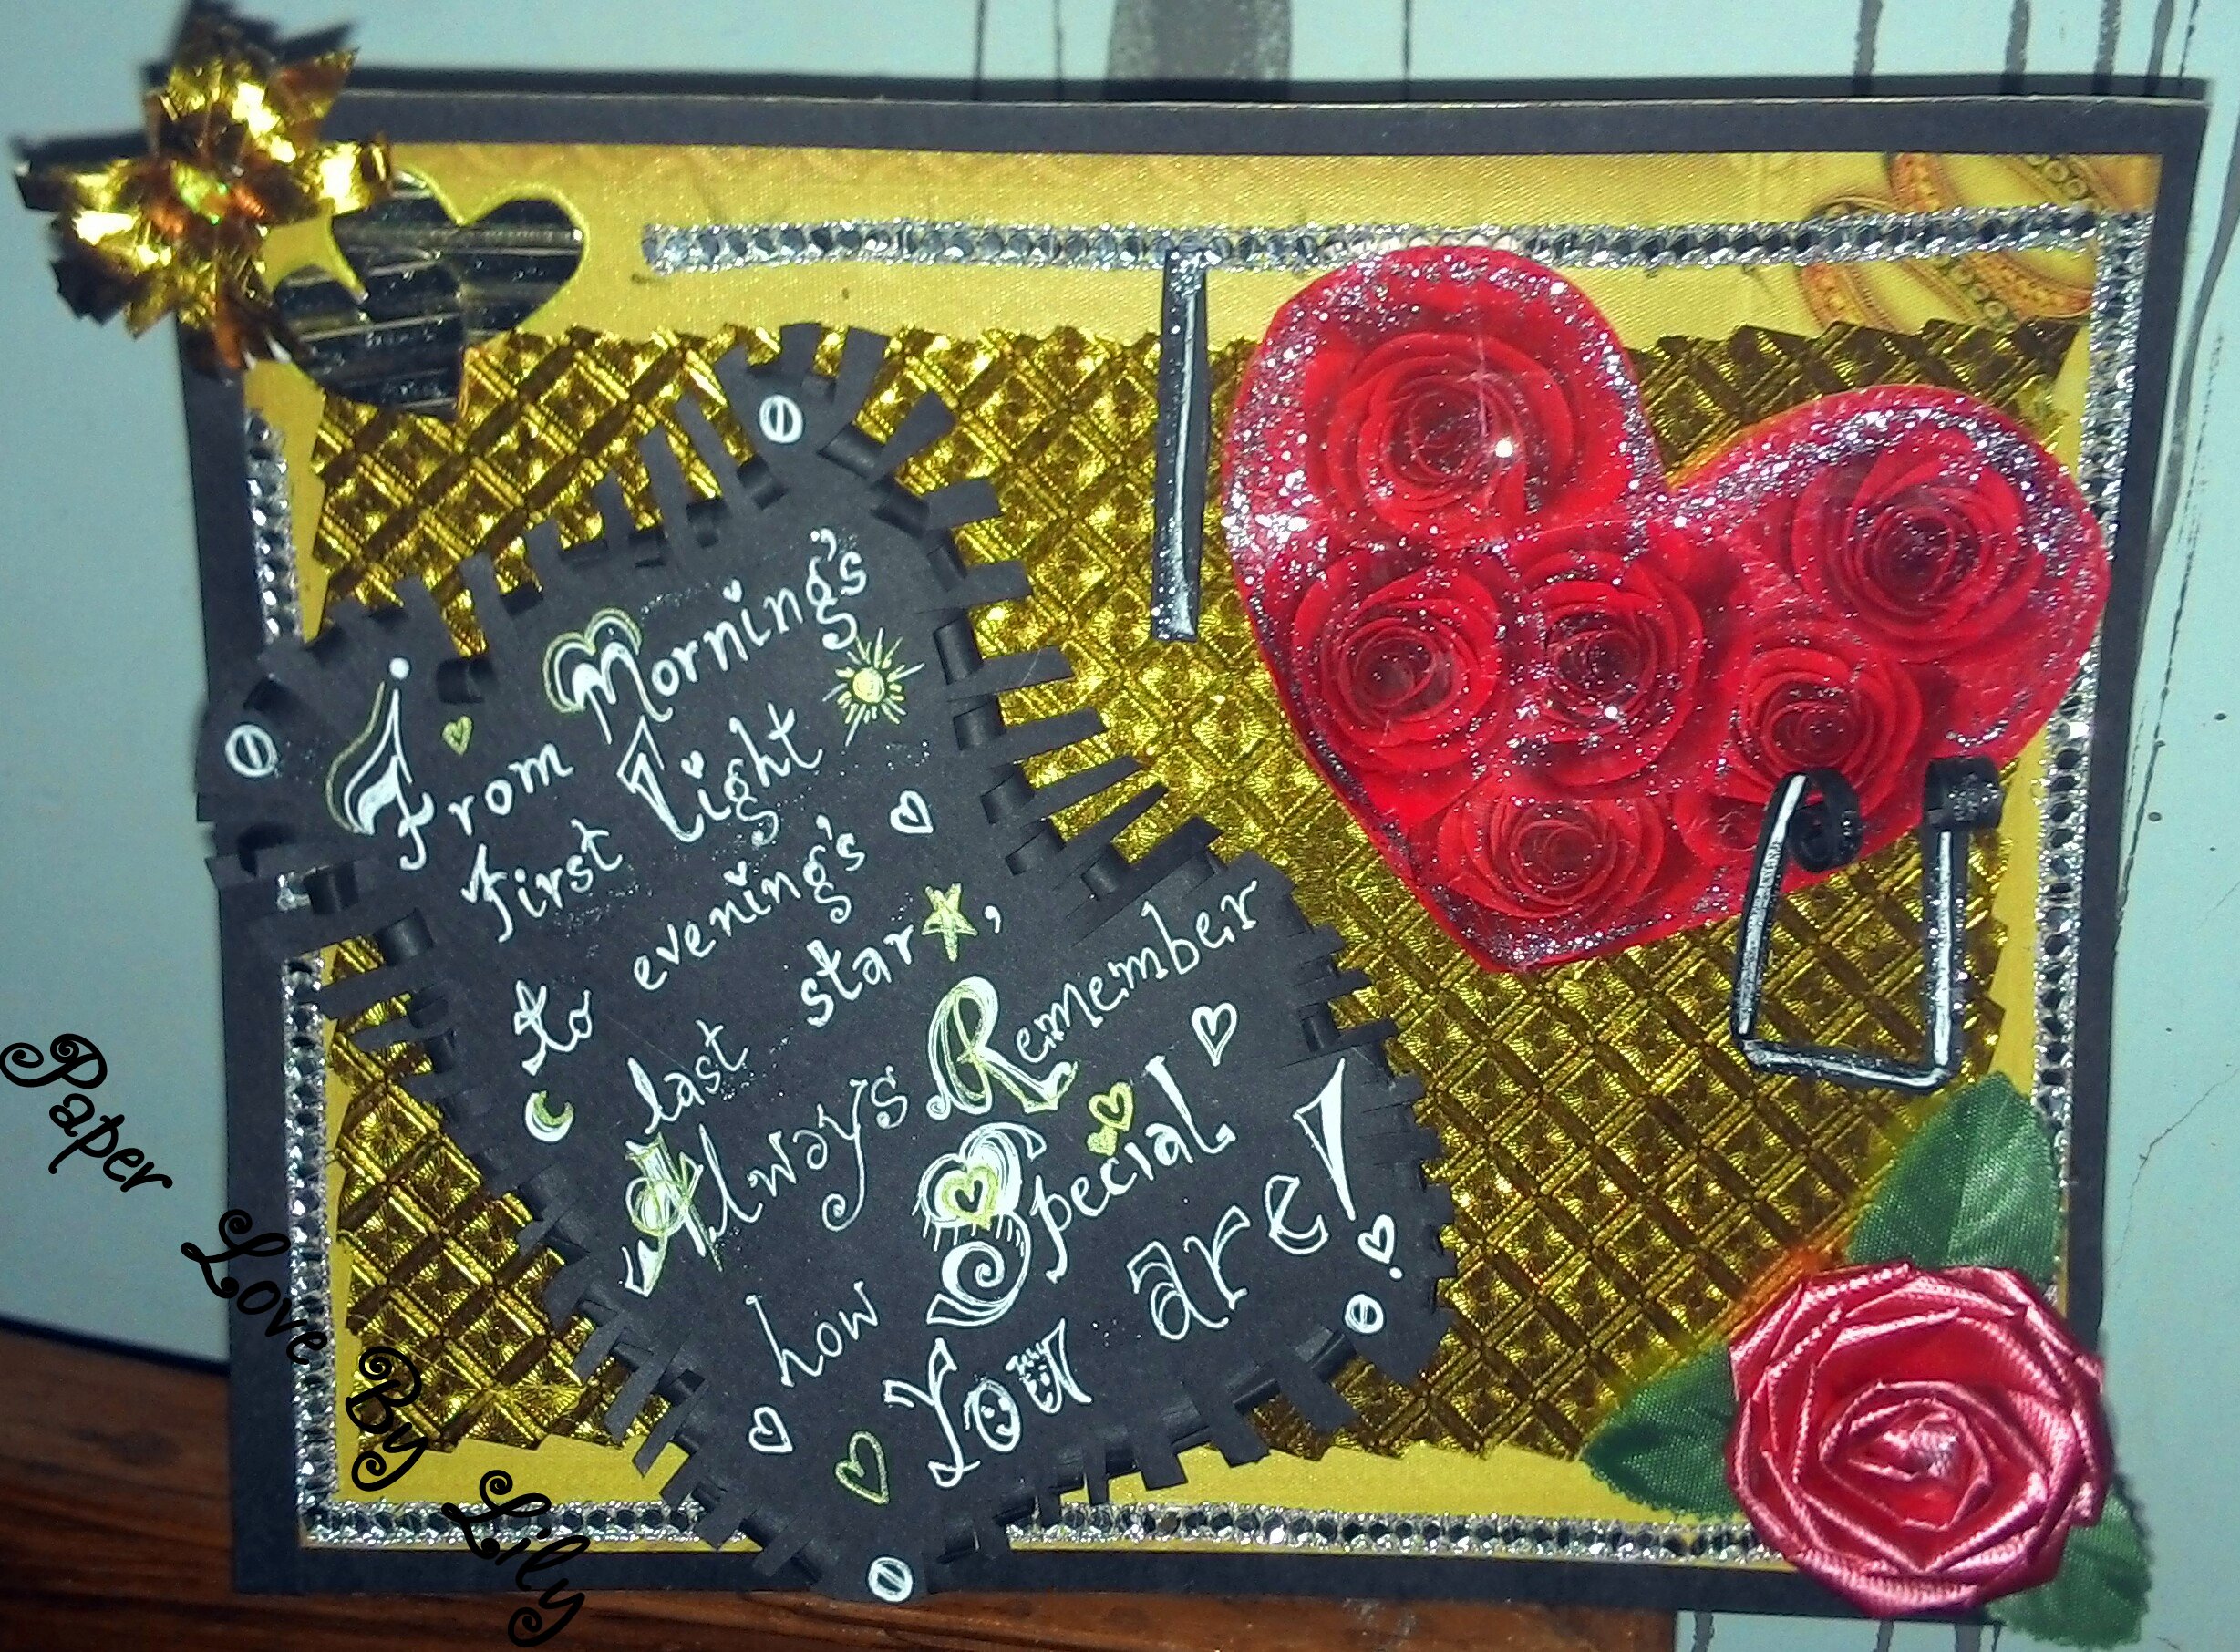 I
U
From Morning's
first Light
to evening's
last star,
Always Remember
how Special
You are!
Paper Love By Lily